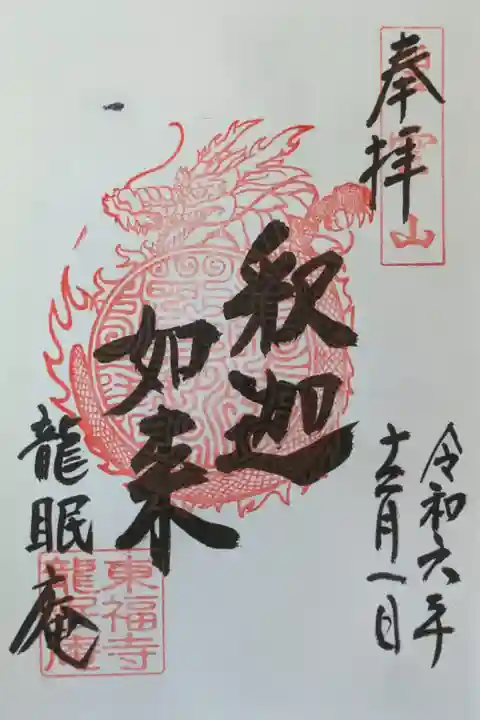 奉拝
山
令和六年
十二月一日
釈迦
如来
龍眠庵
東福寺
龍眠庵